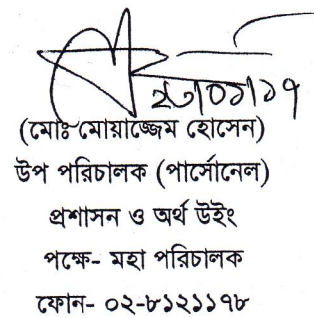 ২৩/০১/১৭
(মোঃ মোয়াজ্জেম হোসেন)
উপ পরিচালক (পার্সোনেল)
প্রশাসন ও অর্থ উইং
পক্ষে- মহা পরিচালক
ফোন- ০২-৮১২১১৭৮